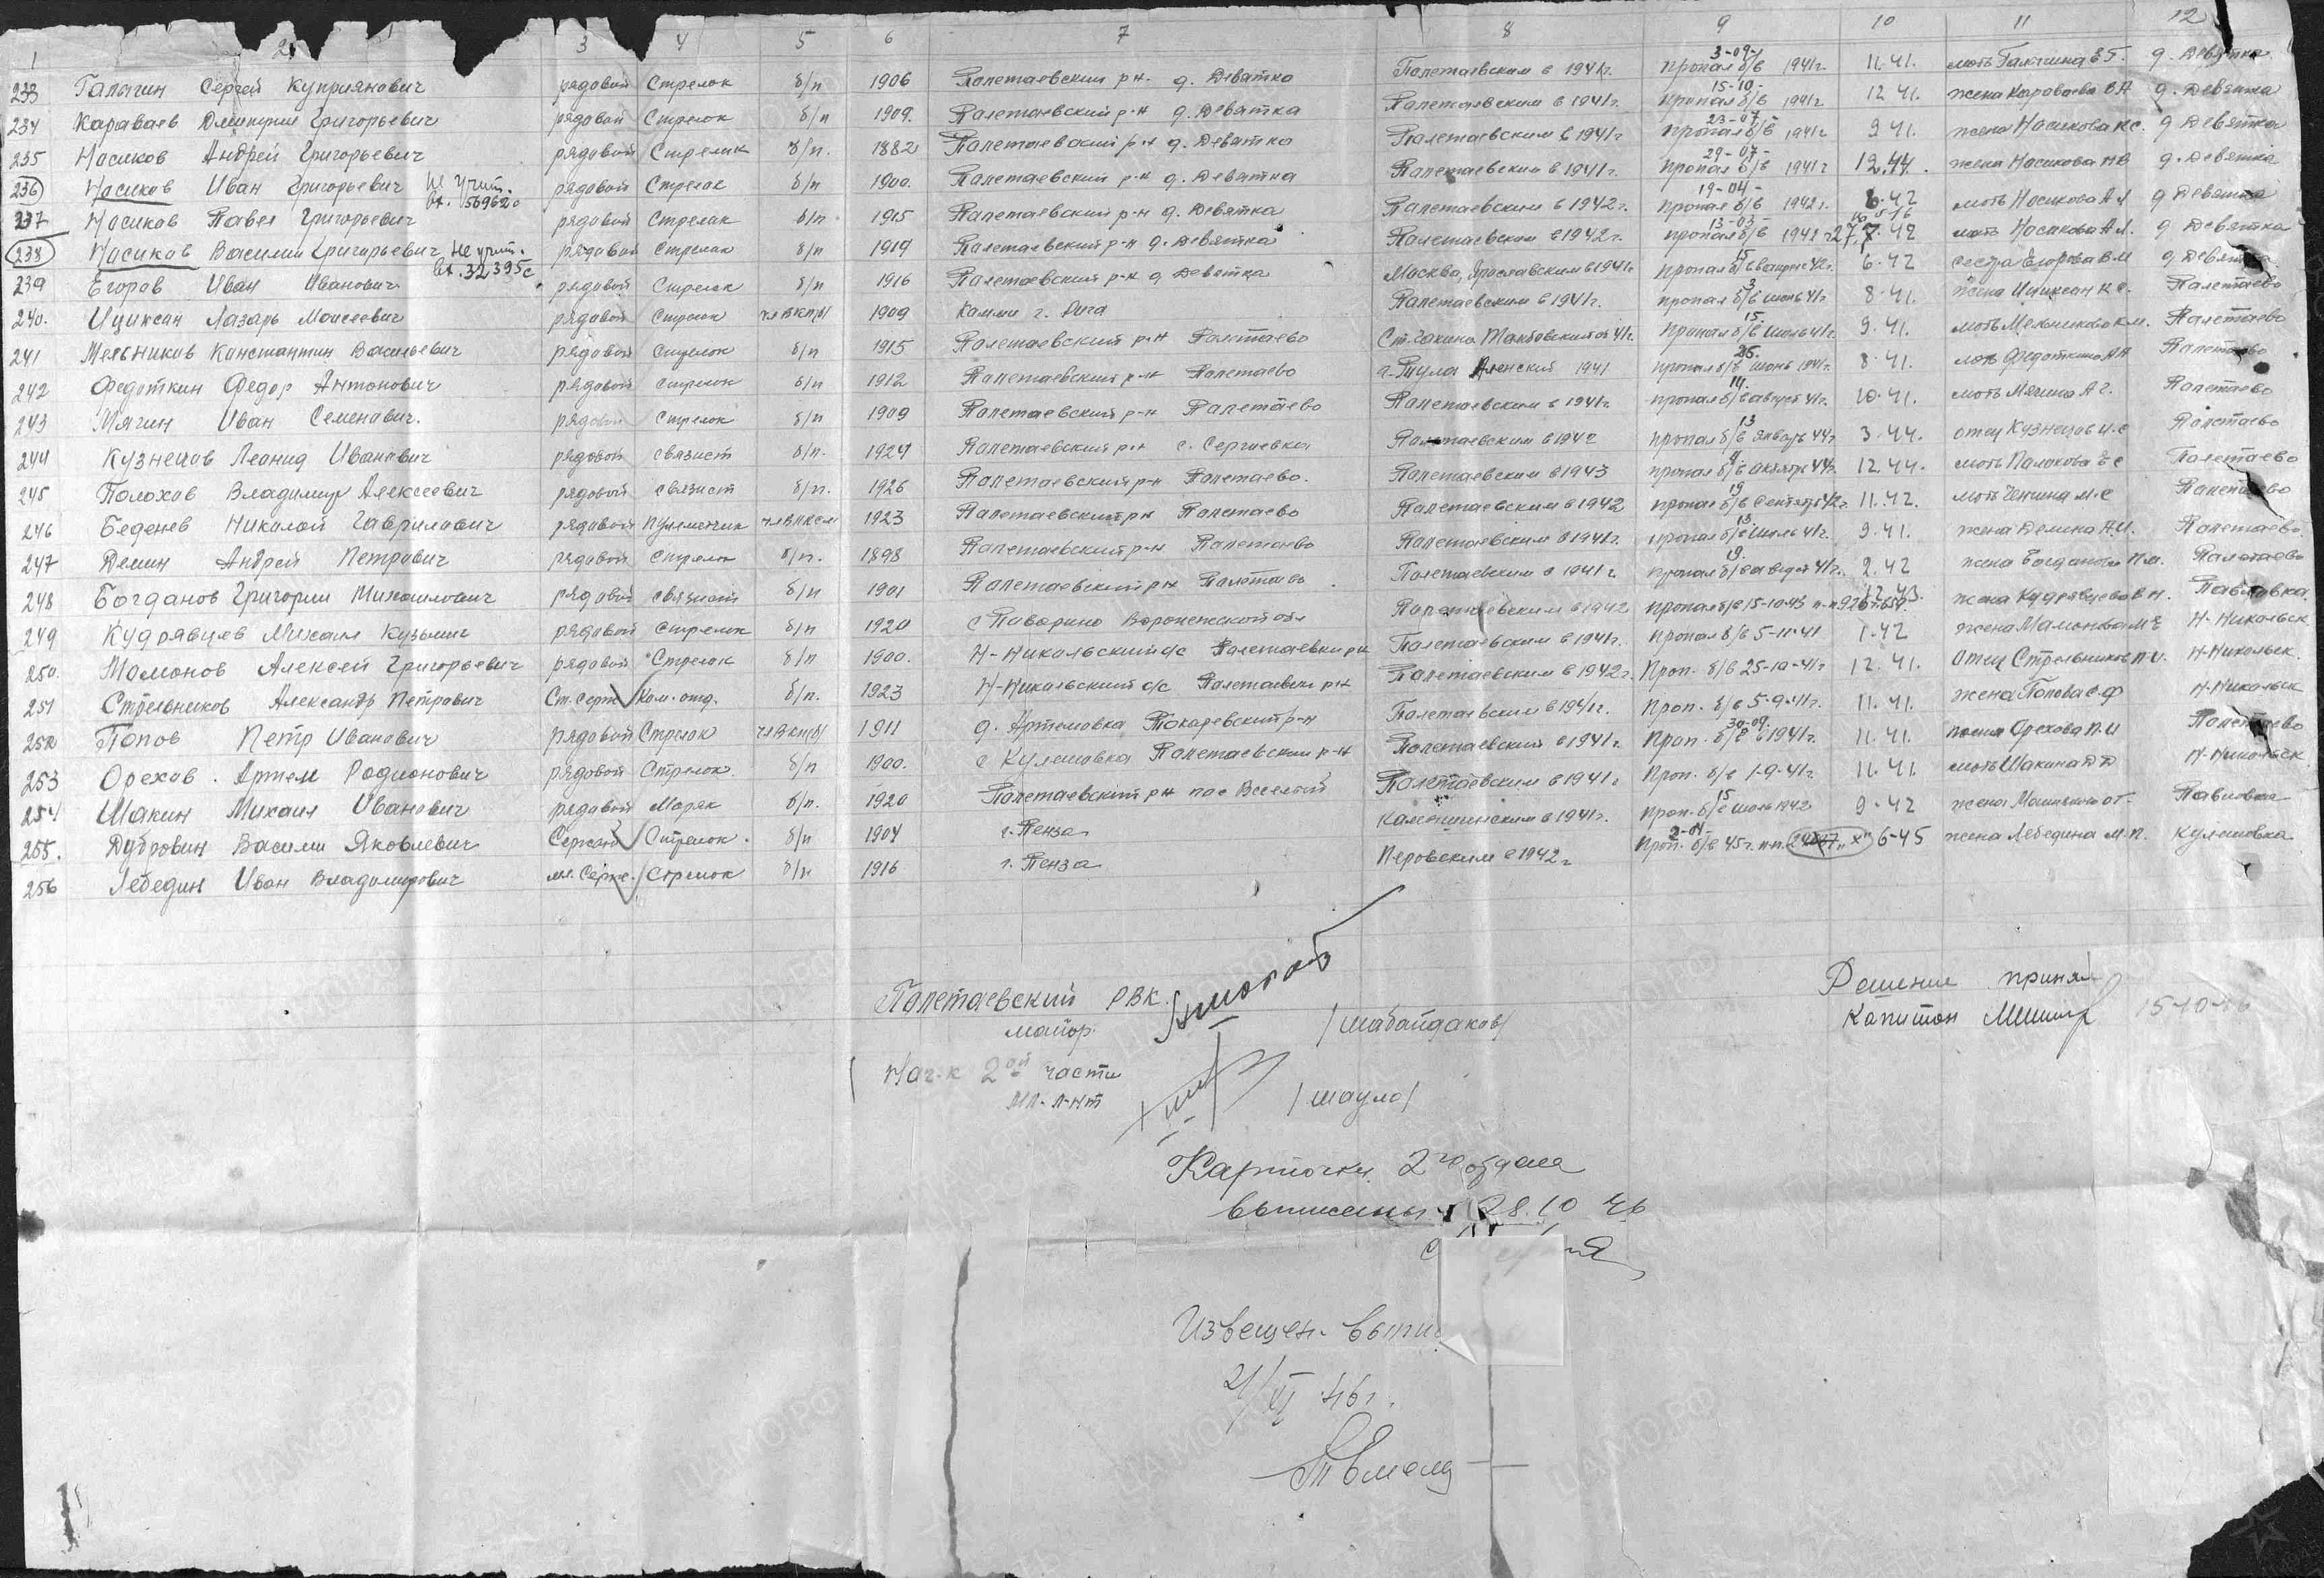 1 2 3 4 5 6 7 8 9 10 11 12
233 Галагин Сергей Куприянович рядовой Стрелок б/п 1906 Полетаевский р-н. д. Девятка Полетаевским в 1941г. 3-09- пропал б/в 1941г. 11.41. мать д. Девятка
234 Караваев Дмитрий Григорьевич рядовой Стрелок б/п 1909. Полетаевский р-н д. Девятка Полетаевским в 1941г. 15-10- пропал б/в 1941г 12 41. жена Караваева В А д. Девятка
235 Носиков Андрей Григорьевич рядовой Стрелок б/п. 1882 Полетаевский р-н д. Девятка Полетаевским в 1941г 23-07 пропал б/в 1941г 9 41. жена Носикова К С. д Девятка
236 Носиков Иван Григорьевич Не учит. вх. 56962с рядовой Стрелок б/п 1900. Полетаевский р-н д. Девятка Полетаевским в 1941г. 29-07- пропал б/в 1941г 12.44. жена Носикова Н В д. Девятка
237 Носиков Павел Григорьевич рядовой Стрелок б/п 1915 Полетаевский р-н д. Девятка Полетаевским в 1942г. 19-04- пропал б/в 1942г. 6-42 мать Носикова А Л д Девятка
238 Носиков Василий Григорьевич Не учит. вх. 32395с рядовой Стрелок б/п 1919 Полетаевский р-н д. Девятка Полетаевским в 1942г. 13-03- пропал б/в 1942г 7.42 мать Носикова А Л. д Девятка
239 Егоров Иван Иванович рядовой Стрелок б/п 1916 Полетаевский р-н д Девятка Москва, Ярославским в 1941г 15 пропал б/в 42г. 6-42 сестра Егорова В М д Девятка
240. Ициксон Лазарь Моисеевич рядовой Стрелок чл ВКП/б/ 1909 г. Рига Полетаевским в 1941г. 3 пропал б/в июль 41г 8-41. жена Ициксон К С. Полетаево
241 Мельников Константин Васильевич рядовой Стрелок б/п 1915 Полетаевский р-н Полетаево Ст. Чакино Тамбовской об 41г. 15. пропал б/в июль 41г. 9.41. мать Мельникова К М. Полетаево
242 Федоткин Федор Антонович рядовой Стрелок б/п 1912 Полетаевский р-н Полетаево г. Тула 1941 26. пропал б/в июнь 1941г. 8-41. мать Федоткина А А Полетаево
243 Мягин Иван Семенович. рядовой Стрелок б/п 1909 Полетаевский р-н Полетаево Полетаевским в 1941г. 14. пропал б/в август 41г. 10-41. мать Мягина А Г. Полетаево
244 Кузнецов Леонид Иванович рядовой связист б/п. 1924 Полетаевский р-н с. Сергиевка Полетаевским в 1942 13 пропал б/в январь 44г 3-44. отец Кузнецов И С Полетаево
245 Полохов Владимир Алексеевич рядовой связист б/п. 1926 Полетаевский р-н Полетаево. Полетаевским в 1943 пропал б/в октябрь 44г. 12.44. мать Полохова Е С Полетаево
246 Беденев Николай Гаврилович рядовой пулеметчик чл ВЛКСМ 1923 Полетаевский р-н Полетаево Полетаевским в 1942 19 пропал б/в Сентябрь 42г. 11.42. мать М С Полетаево
247 Демин Андрей Петрович рядовой Стрелок б/п. 1898 Полетаевский р-н Полетаево Полетаевским в 1941г. 13 пропал б/в июль 41г. 9-41. жена Демина А.И. Полетаево
248 Богданов Григорий Михайлович рядовой связист б/п 1901 Полетаевский р-н Полетаево Полетаевским в 1941г. 19. пропал б/в август 41г. 2.42 жена Богданова П М. Полетаево
249 Кудрявцев Михаил Кузьмич рядовой Стрелок б/п 1920 с Поворино Воронежской обл Полетаевским в 1942 пропал б/в 15-10-43 12.43. жена Кудрявцева В Н. Павловка.
250. Мамонов Алексей Григорьевич рядовой Стрелок б/п 1900. Н-Никольский с/с Полетаевский р-н Полетаевским в 1941г. пропал б/в 5-11-41 1.42 жена Мамонова М Е Н-Никольск
251 Стрельников Александр Петрович Ст. Серж Ком. отд. б/п. 1923 Н-Никольский с/с Полетаевский р-н Полетаевским в 1942г. Проп. б/в 25-10-41г 12.41. Отец Стрельников П.И. Н-Никольск.
252 Попов Петр Иванович рядовой Стрелок чл Вкп/б/ 1911 д. Артемовка Токаревский р-н Полетаевским в 1941г. Проп. б/в 5-9-41г. 11.41. жена Попова С Ф Н-Никольск
253 Орехов. Артем Родионович рядовой Стрелок. б/п 1900. с Кулешовка Полетаевский р-н Полетаевским в 1941г. 30-09. Проп. б/в в 1941г. 11.41. Орехова П И Полетаево
254 Шакин Михаил Иванович рядовой Моряк б/п. 1920 Полетаевский р-н пос Веселый Полетаевским в 1941г Проп. б/в 1-9-41г. 11.41. мать Шакина Н-Никольск
255. Дубровин Василий Яковлевич Сержант Стрелок. б/п 1904 г. Пенза Камешинским в 1941г. 15 Проп. б/в июль 1942 9-42 жена Павловка
256 Лебедин Иван Владимирович мл. Серж. Стрелок б/п 1916 г. Пенза Перовским в 1942г 2-04- Проп. б/в 45г. п-п. 6-45 жена Лебедина М.П. Кулешовка
Полетаевский РВК.
майор /Шабайдаков/
Нач-к 2ой части
мл. л-нт /Шауло/
Решение принял
Капитан 15-10-46
Карточки 2го отдела
выписаны 28.10 46
Извещен. выпи
21/XI 46г.